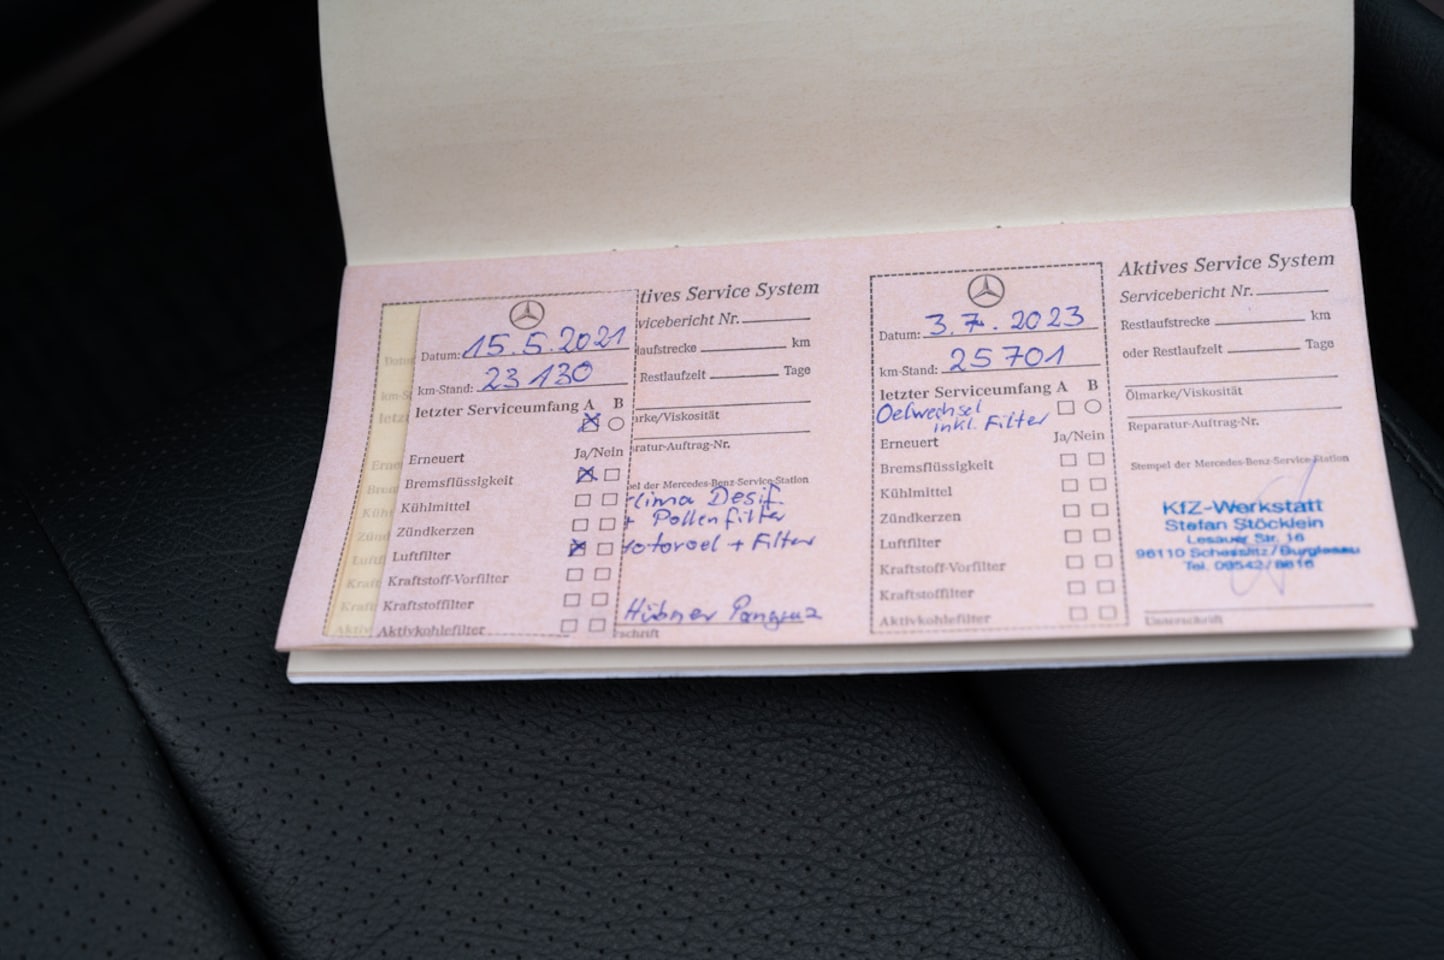 Datum: 15.5.2021
km-Stand: 23 130
letzter Serviceumfang A B
Erneuert Ja/Nein
Bremsflüssigkeit
Kühlmittel
Zündkerzen
Luftfilter
Kraftstoff-Vorfilter
Kraftstoffilter
Aktivkohlefilter
tives Service System
vicebericht Nr.
laufstrecke km
Restlaufzeit Tage
rke/Viskosität
ratur-Auftrag-Nr.
el der Mercedes-Benz-Service-Station
lima Desif.
+ Pollenfilter
otoroel + Filter
Hübner
schrift
Datum: 3.7.2023
km-Stand: 25 701
letzter Serviceumfang A B
Oelwechsel
inkl. Filter
Erneuert Ja/Nein
Bremsflüssigkeit
Kühlmittel
Zündkerzen
Luftfilter
Kraftstoff-Vorfilter
Kraftstoffilter
Aktivkohlefilter
Aktives Service System
Servicebericht Nr.
Restlaufstrecke km
oder Restlaufzeit Tage
Ölmarke/Viskosität
Reparatur-Auftrag-Nr.
Stempel der Mercedes-Benz-Service-Station
KfZ-Werkstatt
Stefan Stöcklein
Lesauer Str. 16
96110 Schesslitz/Burglesau
Tel. 09542/8616
Unterschrift